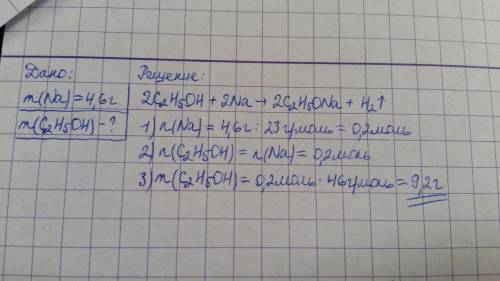 Дано:
m(Na)=4,6г
m(C₂H₅OH)-?
Решение:
2C₂H₅OH + 2Na → 2C₂H₅ONa + H₂↑
1) n(Na) = 4,6г : 23г/моль = 0,2моль
2) n(C₂H₅OH) = n(Na) = 0,2моль
3) m(C₂H₅OH) = 0,2моль · 46г/моль = 9,2г